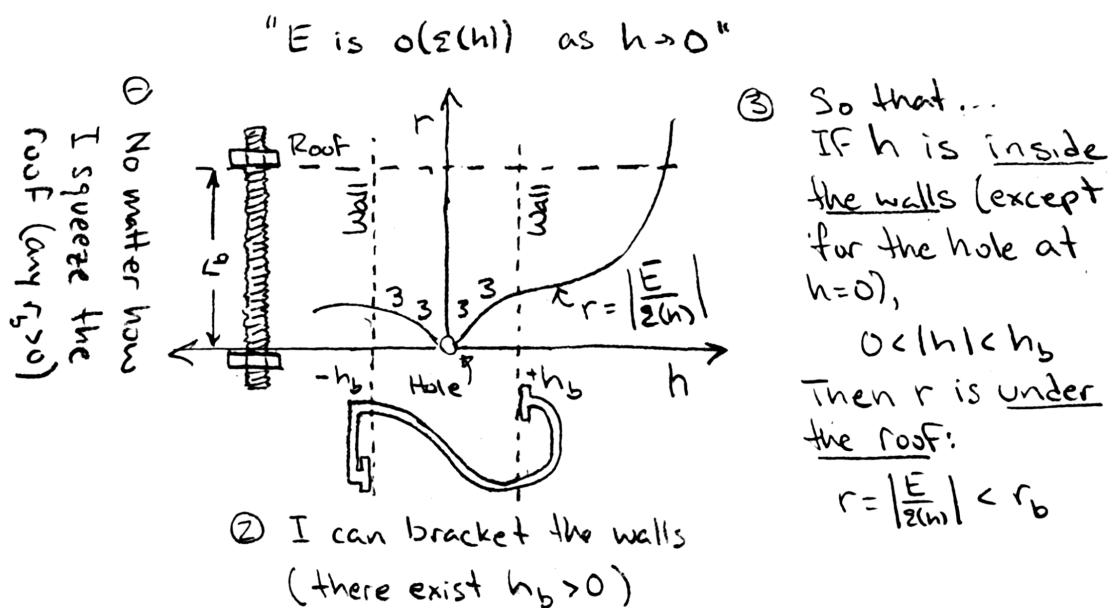 "E is o(Σ(h)) as h→0"
① No matter how
I squeeze the
roof (any r_b>0)
Roof
r_b
r
Wall
Wall
3 3 3 3
r = |E/Σ(h)|
-h_b
Hole
+h_b
h
② I can bracket the walls
(there exist h_b>0)
③ So that...
IF h is inside
the walls (except
for the hole at
h=0),
0<|h|<h_b
Then r is under
the roof:
r = |E/Σ(h)| < r_b